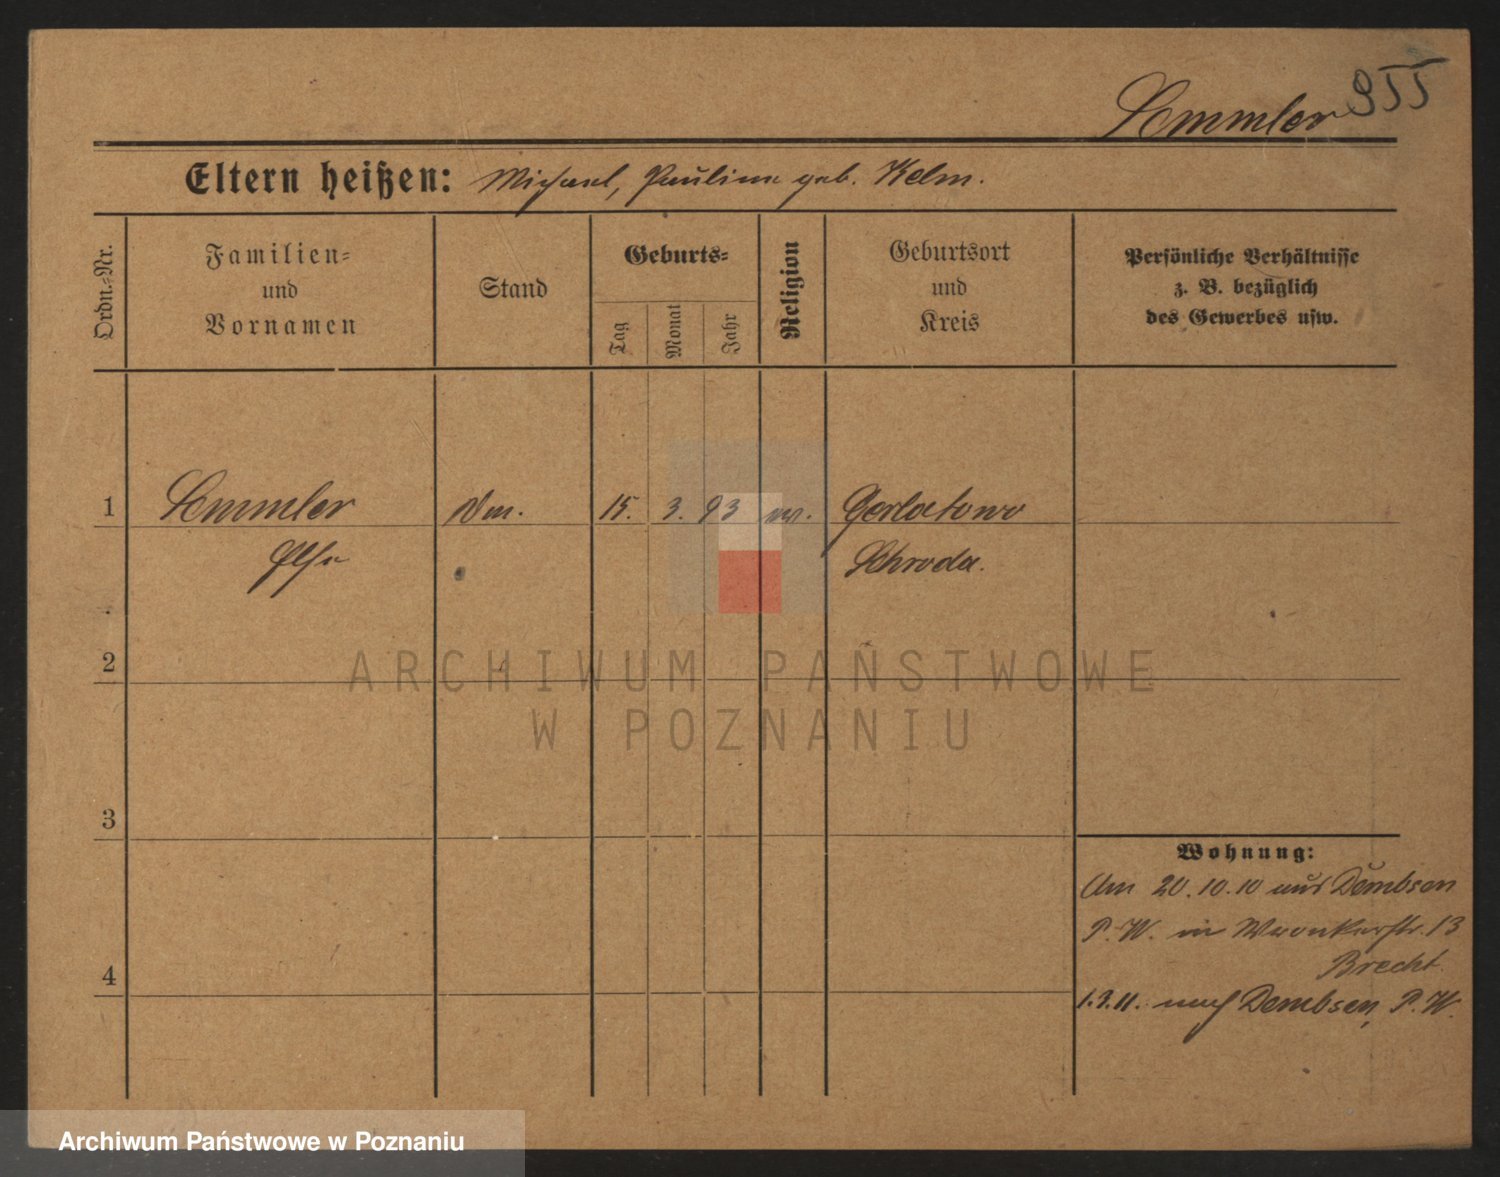 Semmler 955
Eltern heißen: Michael, Pauline geb. Kelm.
Ordn.-Nr.
Familien-
und
Vornamen
Stand
Geburts-
Tag
Monat
Jahr
Religion
Geburtsort
und
Kreis
Persönliche Verhältnisse
z. B. bezüglich
des Gewerbes usw.
1 Semmler 15. 3. 93 Gorlatowo
Else Schroda.
2
3
4
Wohnung:
Am 20.10.10 aus Dembsen
P. W. in Wronkerstr. 13
Brecht
1.3.11. nach Dembsen, P. W.
ARCHIWUM PAŃSTWOWE
W POZNANIU
Archiwum Państwowe w Poznaniu